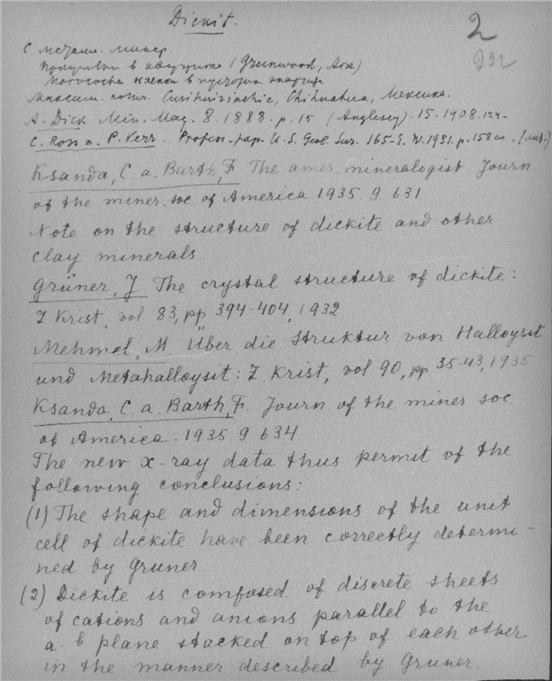 Dickit.
2
292
С метал. минер
в кварците (Greenwood, Ark)
Cusihuiriachic, Chihuahua, Мексика.
A. Dick Min. Mag. 8. 1888. p. 15 (Anglesey). 15. 1908. 124.
C. Ross a. P. Kerr. Profess. pap. U.S. Geol. Sur. 165-E. W. 1931. p. 158
Ksanda, C. a. Barth, F. The amer. mineralogist Journ
of the miner. soc of America 1935. 9. 631
Note on the structure of dickite and other
clay minerals
Grüner, J The crystal structure of dickite:
Z Krist, vol. 83, pp 394-404, 1932
Mehmel, M. Über die Struktur von Halloysit
und Metahalloysit: Z Krist, vol 90, pp 35-43, 1935
Ksanda, C. a. Barth, F. Journ of the miner soc
of America. 1935. 9 634
The new x-ray data thus permit of the
following conclusions:
(1) The shape and dimensions of the unit
cell of dickite have been correctly determi-
ned by Gruner
(2) Dickite is composed of discrete sheets
of cations and anions parallel to the
a b plane stacked on top of each other
in the manner described by Gruner.